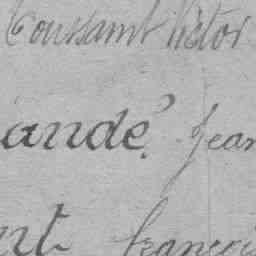 Toussaint Victor
andé. Jean
nt françoi